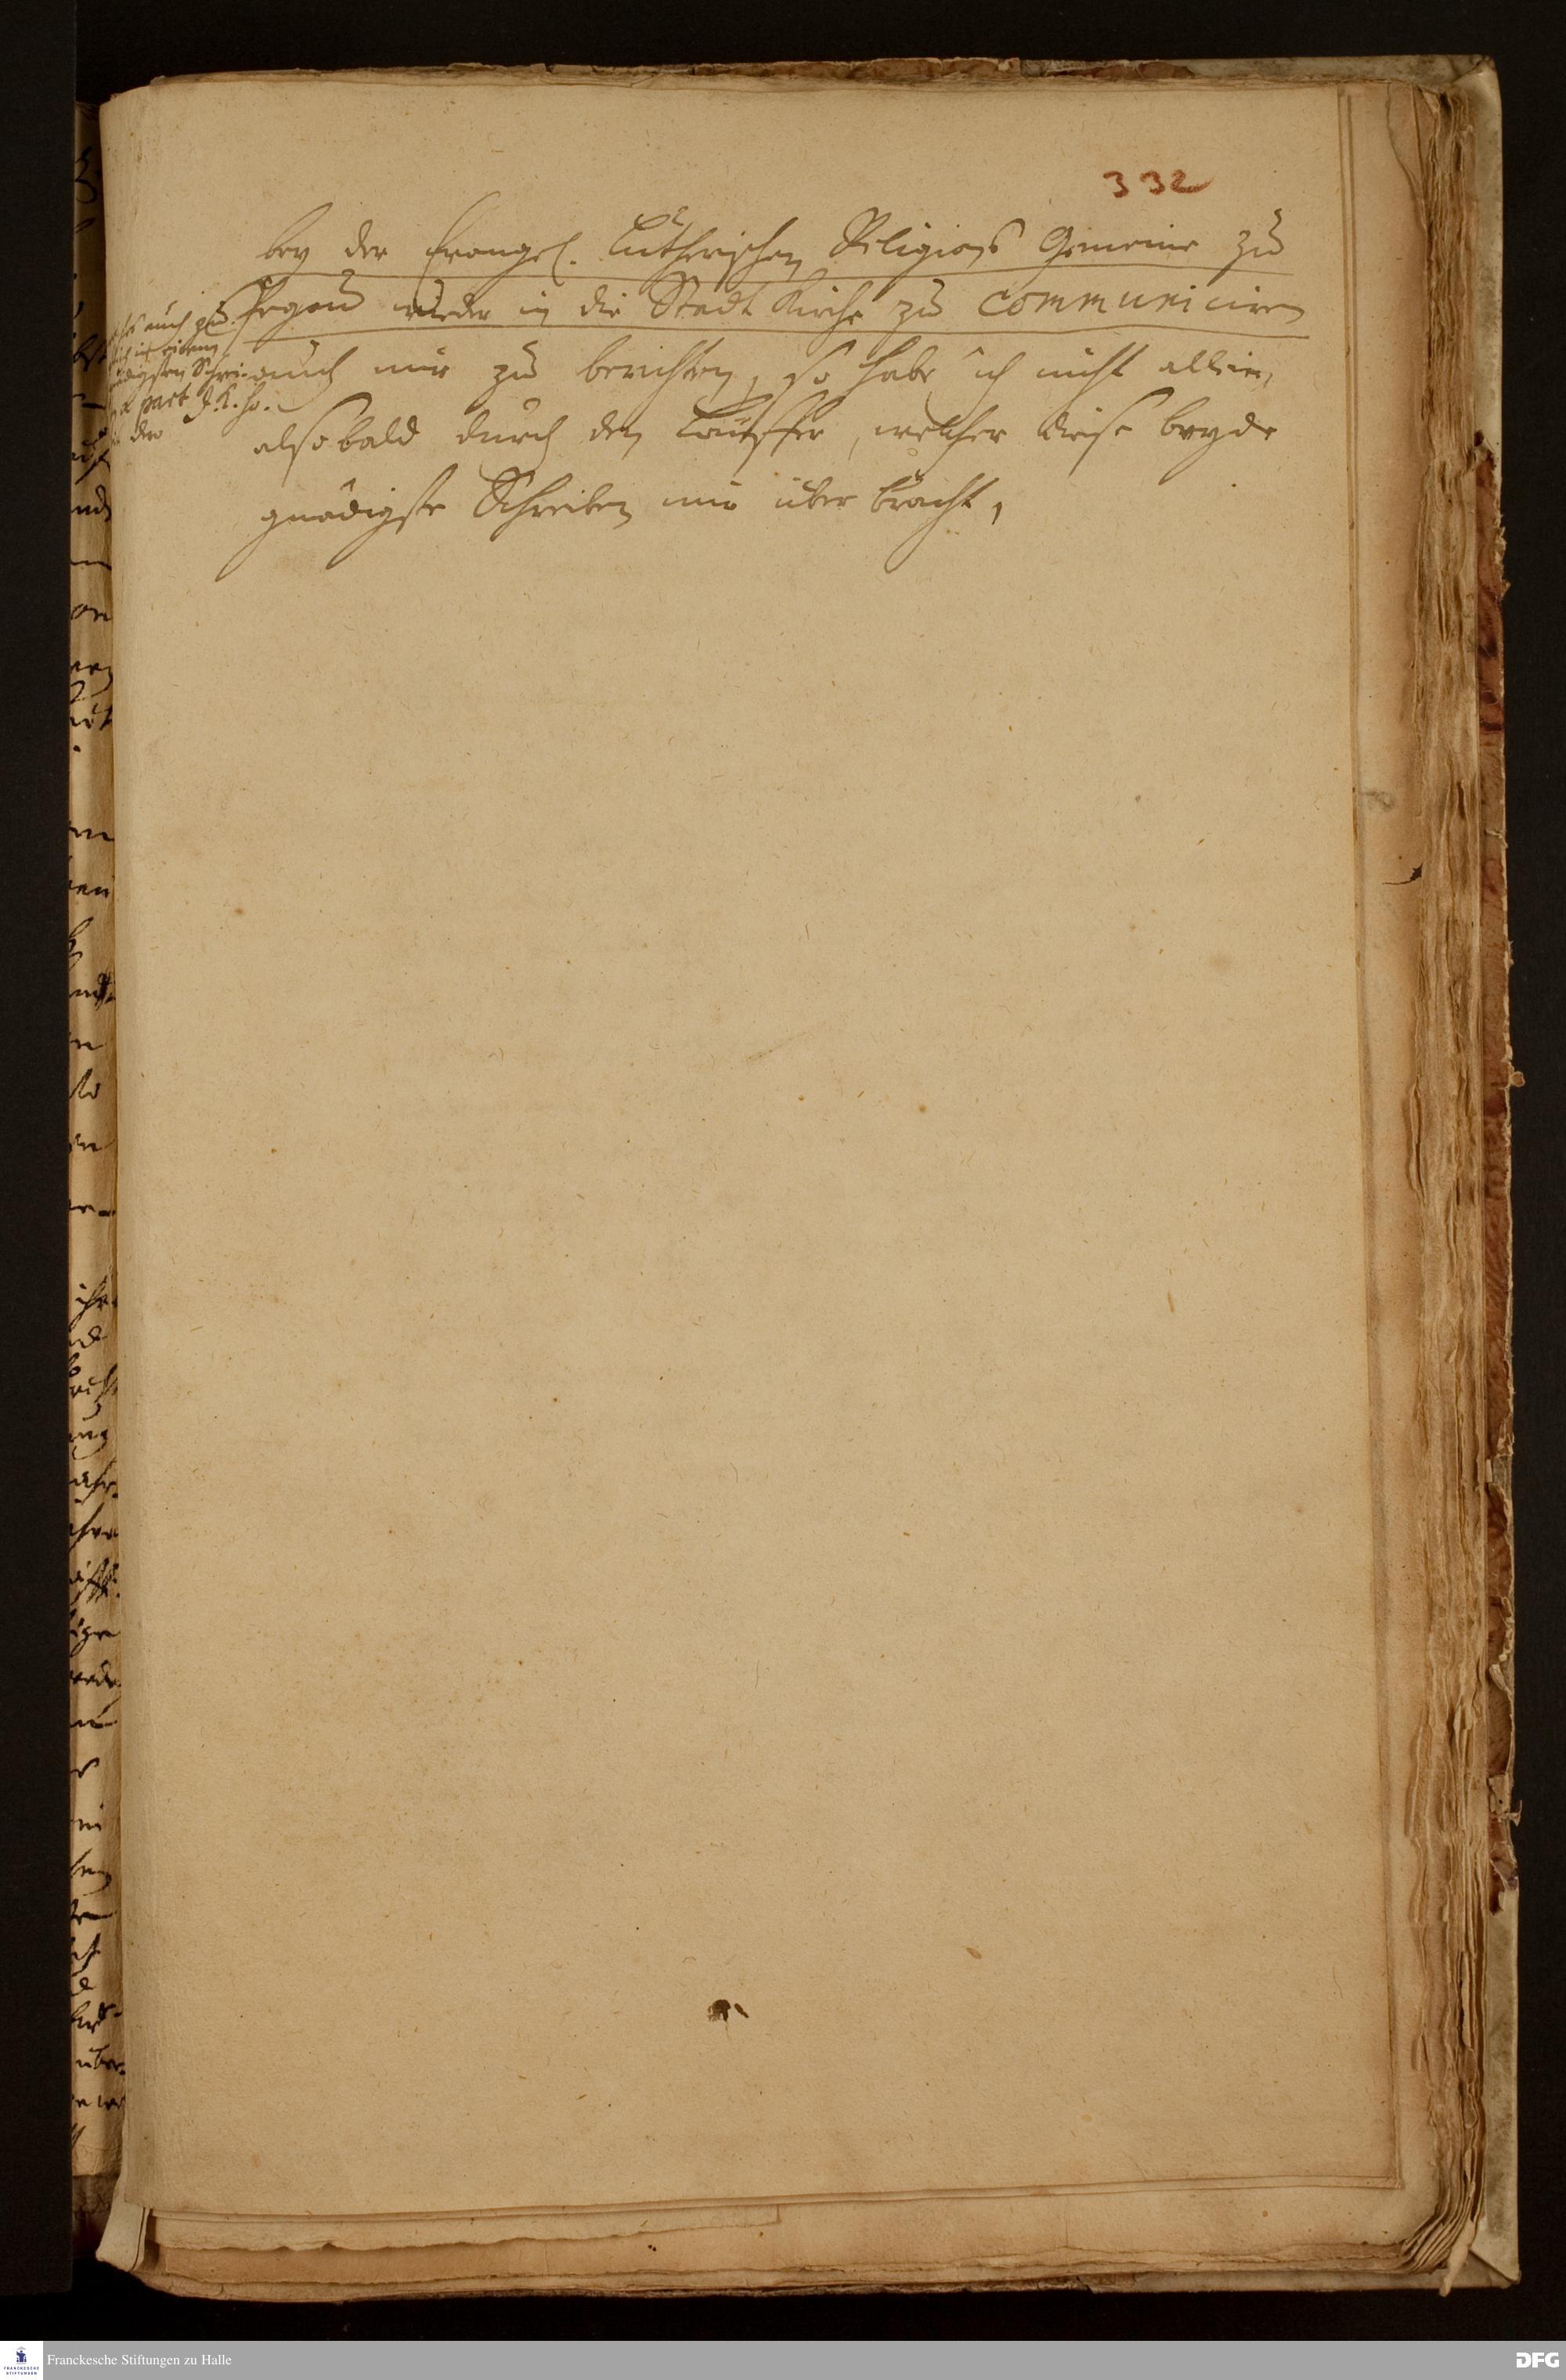 332
bey der Evangel. Lutherischen Religions Gemeine zu
Pegau wieder in die Stadt Kirche zu communiciren
auch mir zu berichten, so habe ich nicht allein,
alsobald durch den Läuffer, welcher diese beyde
gnädigste Schreiben mir überbracht,
auch zu
in einem
Schrei-
a part J. K. Ho.
der
Franckesche Stiftungen zu Halle
DFG